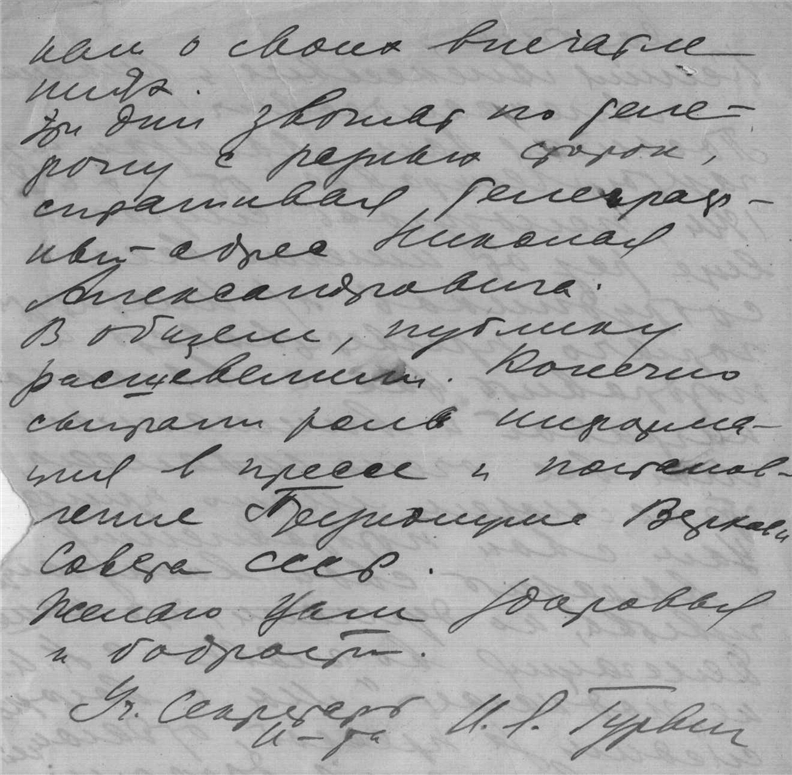 нам о своих впечатле-
ниях.
Три дня звонят по теле-
фону с разных сторон,
спрашивая телеграф-
ный адрес Николая
Александровича.
В общем, публику
расшевелили. Конечно
сыграли роль информа-
ция в прессе и постанов-
ление Президиума Верховн
Совета СССР.
Желаю Вам здоровья
и бодрости.
Уч. Секретарь И. Я. Гурвич
И-та